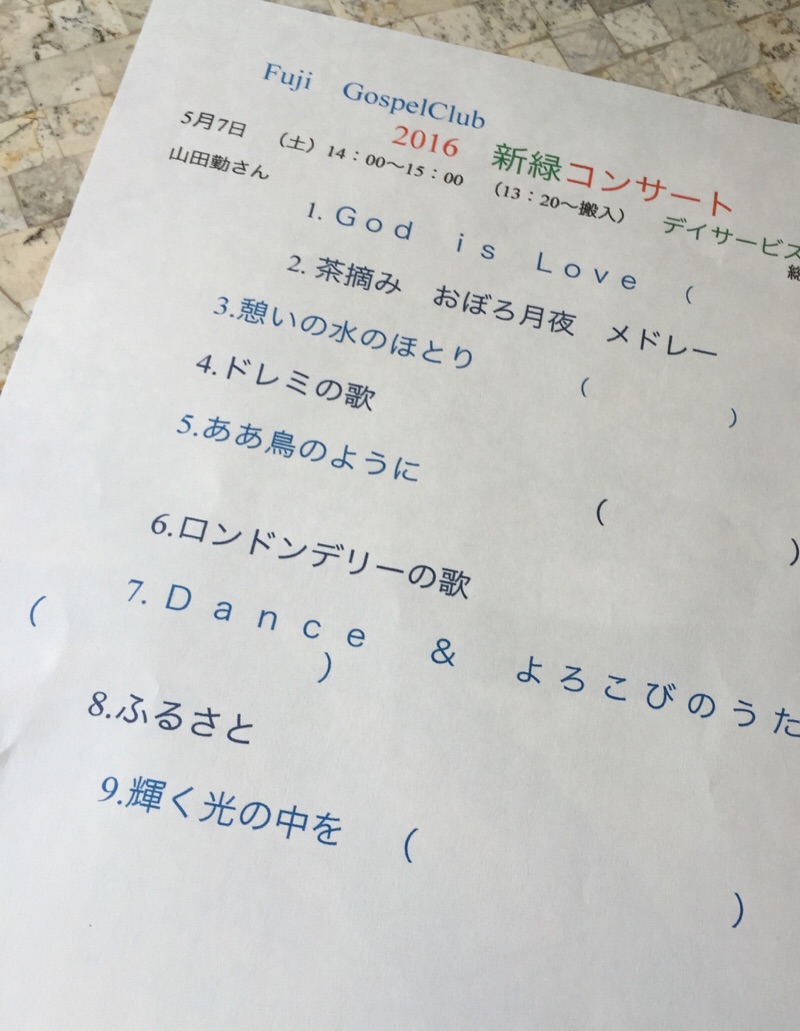 Fuji GospelClub
2016 新緑コンサート
5月7日 （土）14：00～15：00 （13：20～搬入） デイサービス
山田勤さん
1. God is Love (
2. 茶摘み おぼろ月夜 メドレー
3.憩いの水のほとり ( )
4.ドレミの歌
5.ああ鳥のように ( )
6.ロンドンデリーの歌
7. Dance & よろこびのうた
( )
8.ふるさと
9.輝く光の中を ( )